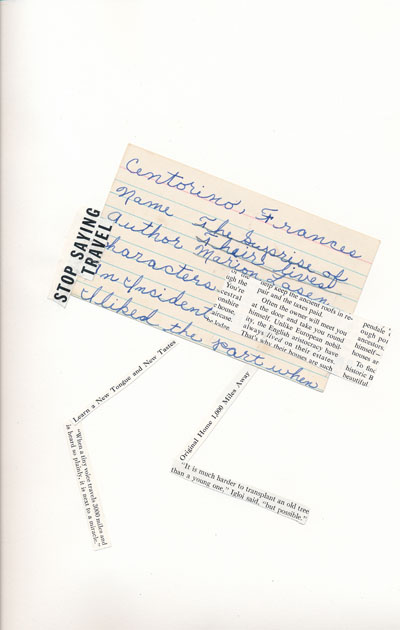 Centorino, Frances
Name The Suprise of
Their Lives
Author Marion Lasen
haracters
In-Incident
I liked the part when
STOP SAVING
TRAVEL
gh the
You're
cestral
onshire
house.
aircase.
keep the ancient roofs in re-
pair and the taxes paid.
Often the owner will meet you
at the door and take you round
himself. Unlike European nobil-
ity, the English aristocracy have
always lived on their estates.
That's why their houses are such
pendale
ough
ancestors.
himself—
houses
To find
historic B
beautiful
Learn a New Tongue and New Tastes
"When a tiny voice travels 3000 miles and
is heard so plainly, it is next to a miracle."
Original Home 1,000 Miles Away
"It is much harder to transplant an old tree
than a young one," Igloi said, "but possible."